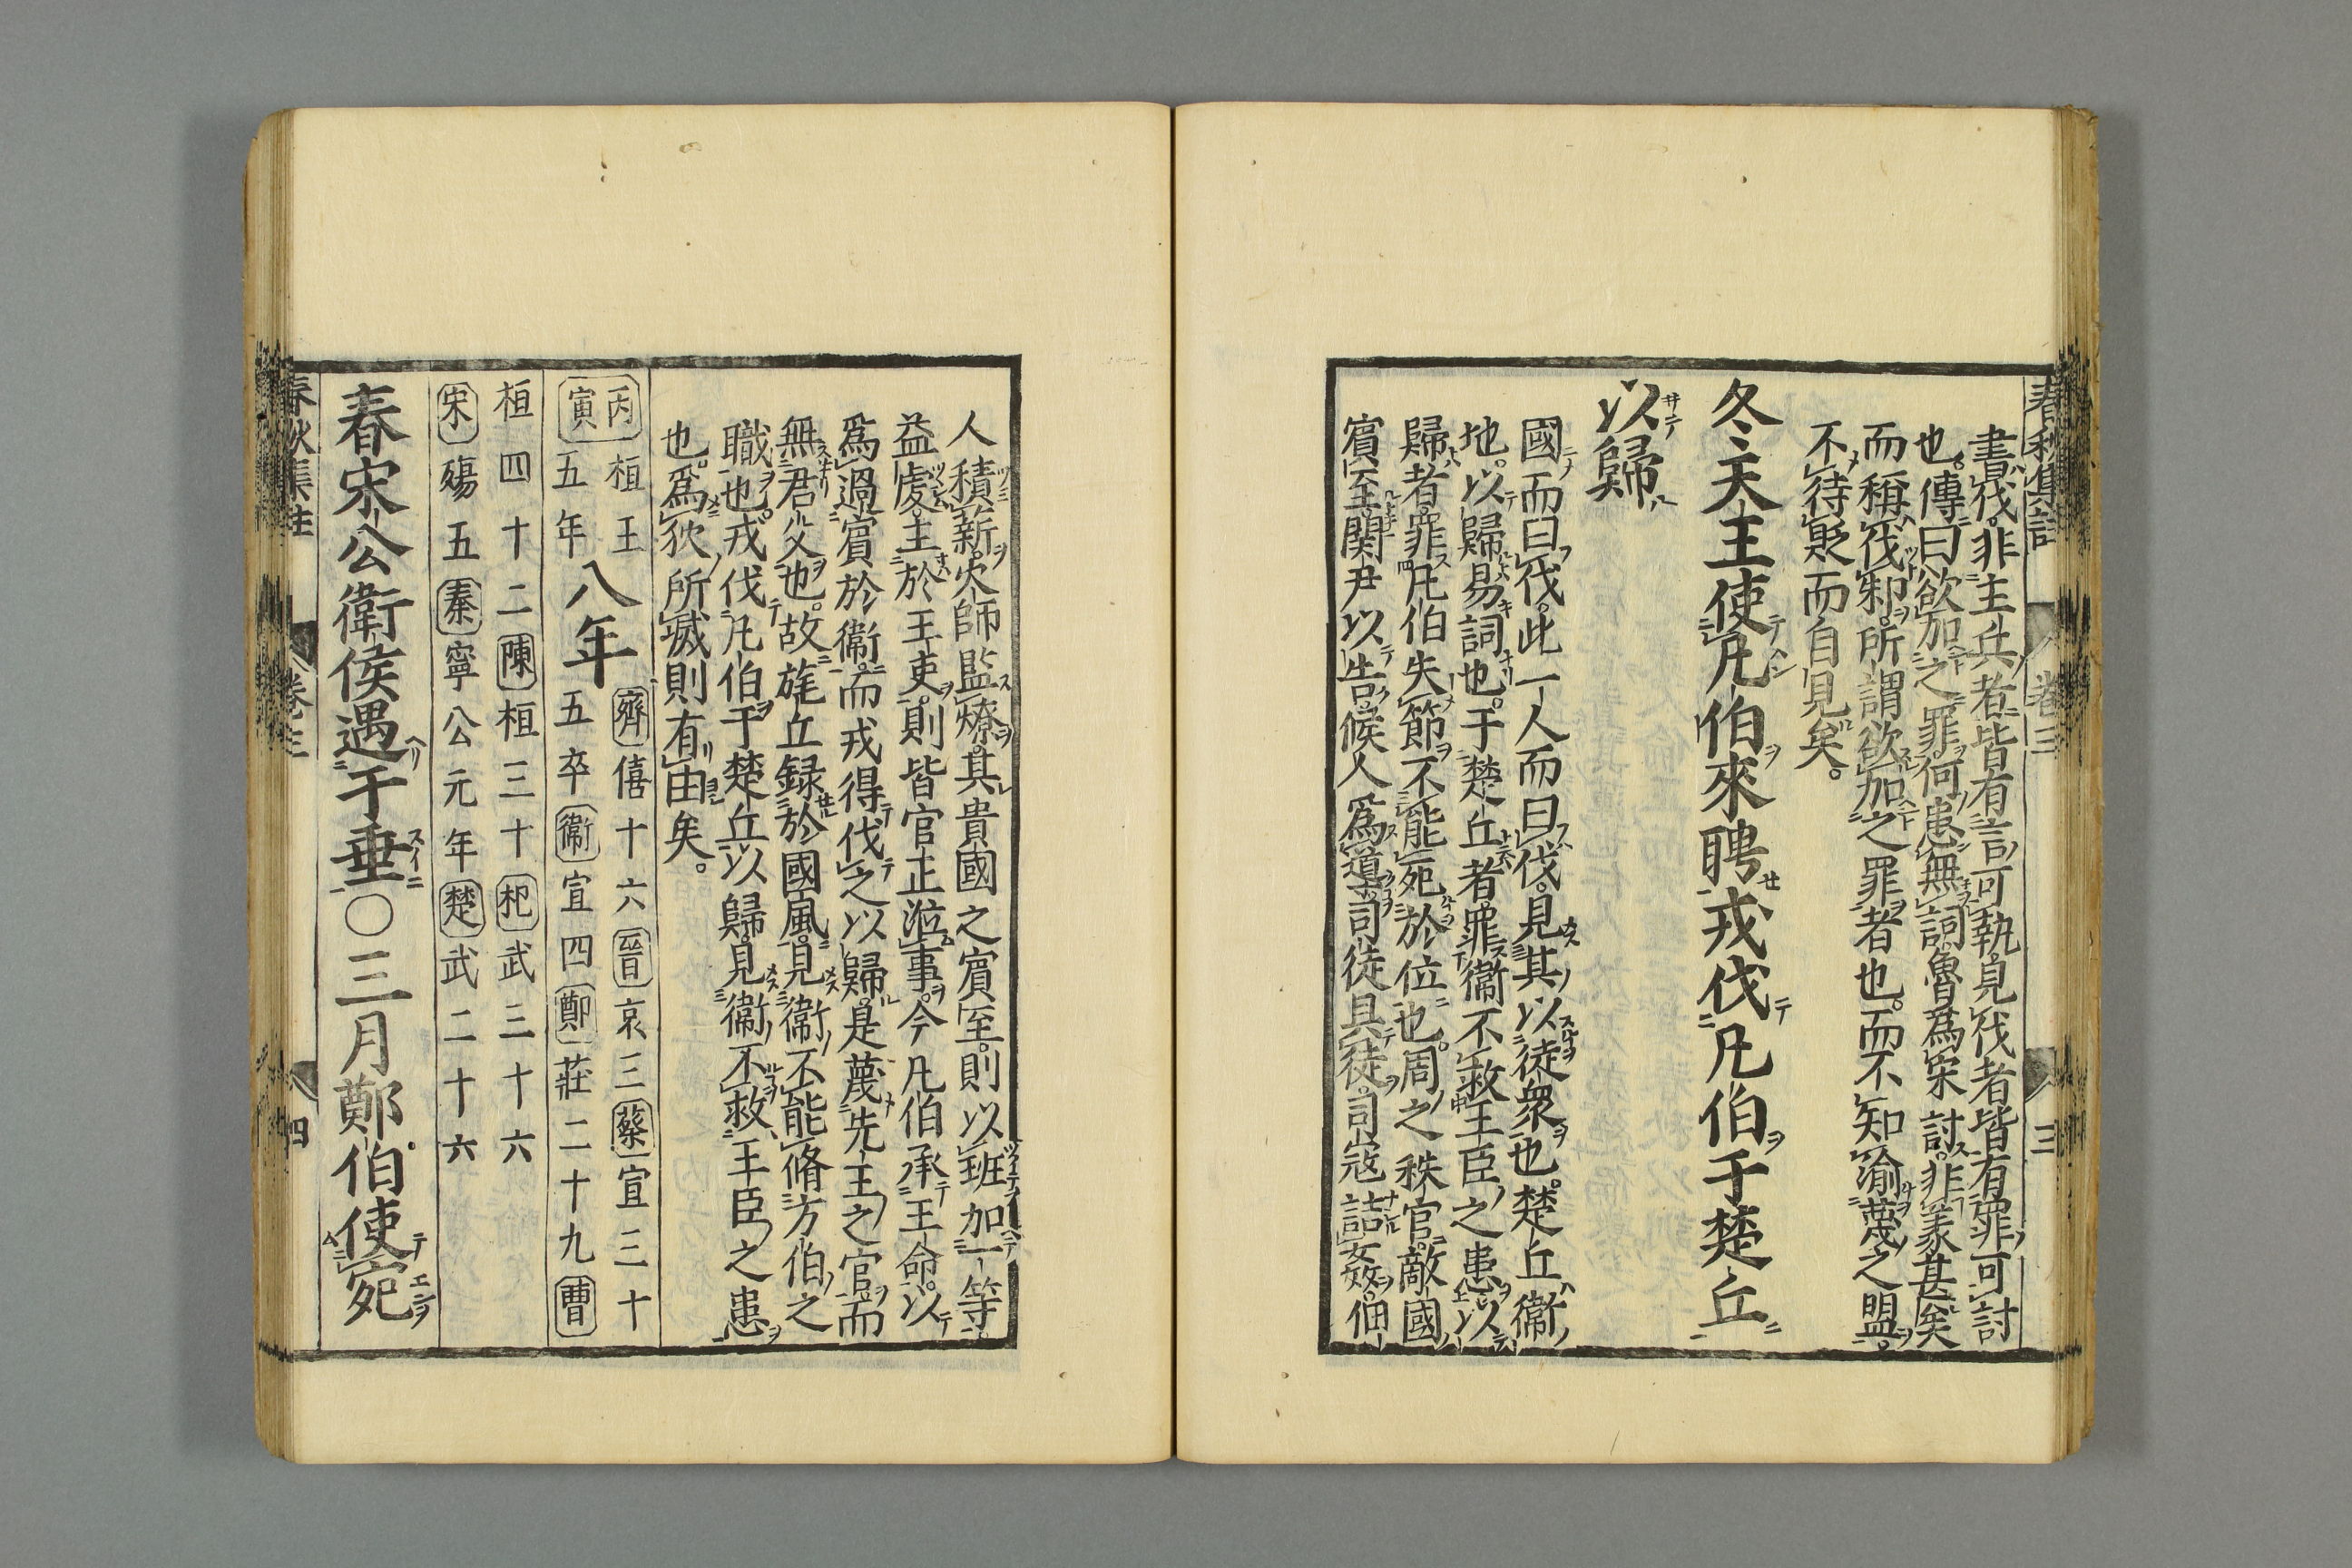 春秋集註 卷三 三
書伐。非主兵者。皆有言可執。見伐者。皆有罪可討
也。傳曰。欲加之罪。何患無詞。魯爲宋討。非義甚矣
而稱伐邾。所謂欲加之罪者也。而不知渝蔑之盟。
不待貶而自見矣。
冬天王使凡伯來聘戎伐凡伯于楚丘
以歸
國而曰伐。此一人而曰伐。見其以徒衆也。楚丘衞
地。以歸易詞也。于楚丘者。罪衞不救王臣之患。以
歸者。罪凡伯失節。不能死於位也。周之秩官。敵國
賓至。關尹以告。候人爲道。司徒具徒。司寇詰姦。佃
人積薪。火師監燎。其貴國之賓至。則以班加一等
益虔。主於王吏。則皆官正涖事。今凡伯承王命。以
爲過賓於衞。而戎得伐之以歸。是蔑先王之官。而
無君父也。故旄丘録於國風。見衞不能脩方伯之
職也。戎伐凡伯于楚丘以歸。見衞不救王臣之患
也。爲狄所滅則有由矣。
丙寅 桓王五年 八年 齊僖十六 晉哀三 蔡宣三十五卒 衞宣四 鄭莊二十九 曹
桓四十二 陳桓三十 杞武三十六
宋殤五 秦寧公元年 楚武二十六
春宋公衛侯遇于垂〇三月鄭伯使宛
春秋集註 卷三 四